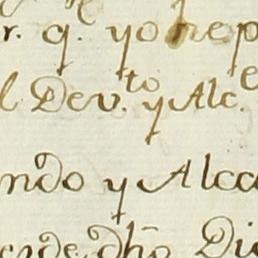 r. q.e yo rep
l Dev.to y Alc.e
ndo y Alca
ende dho Die